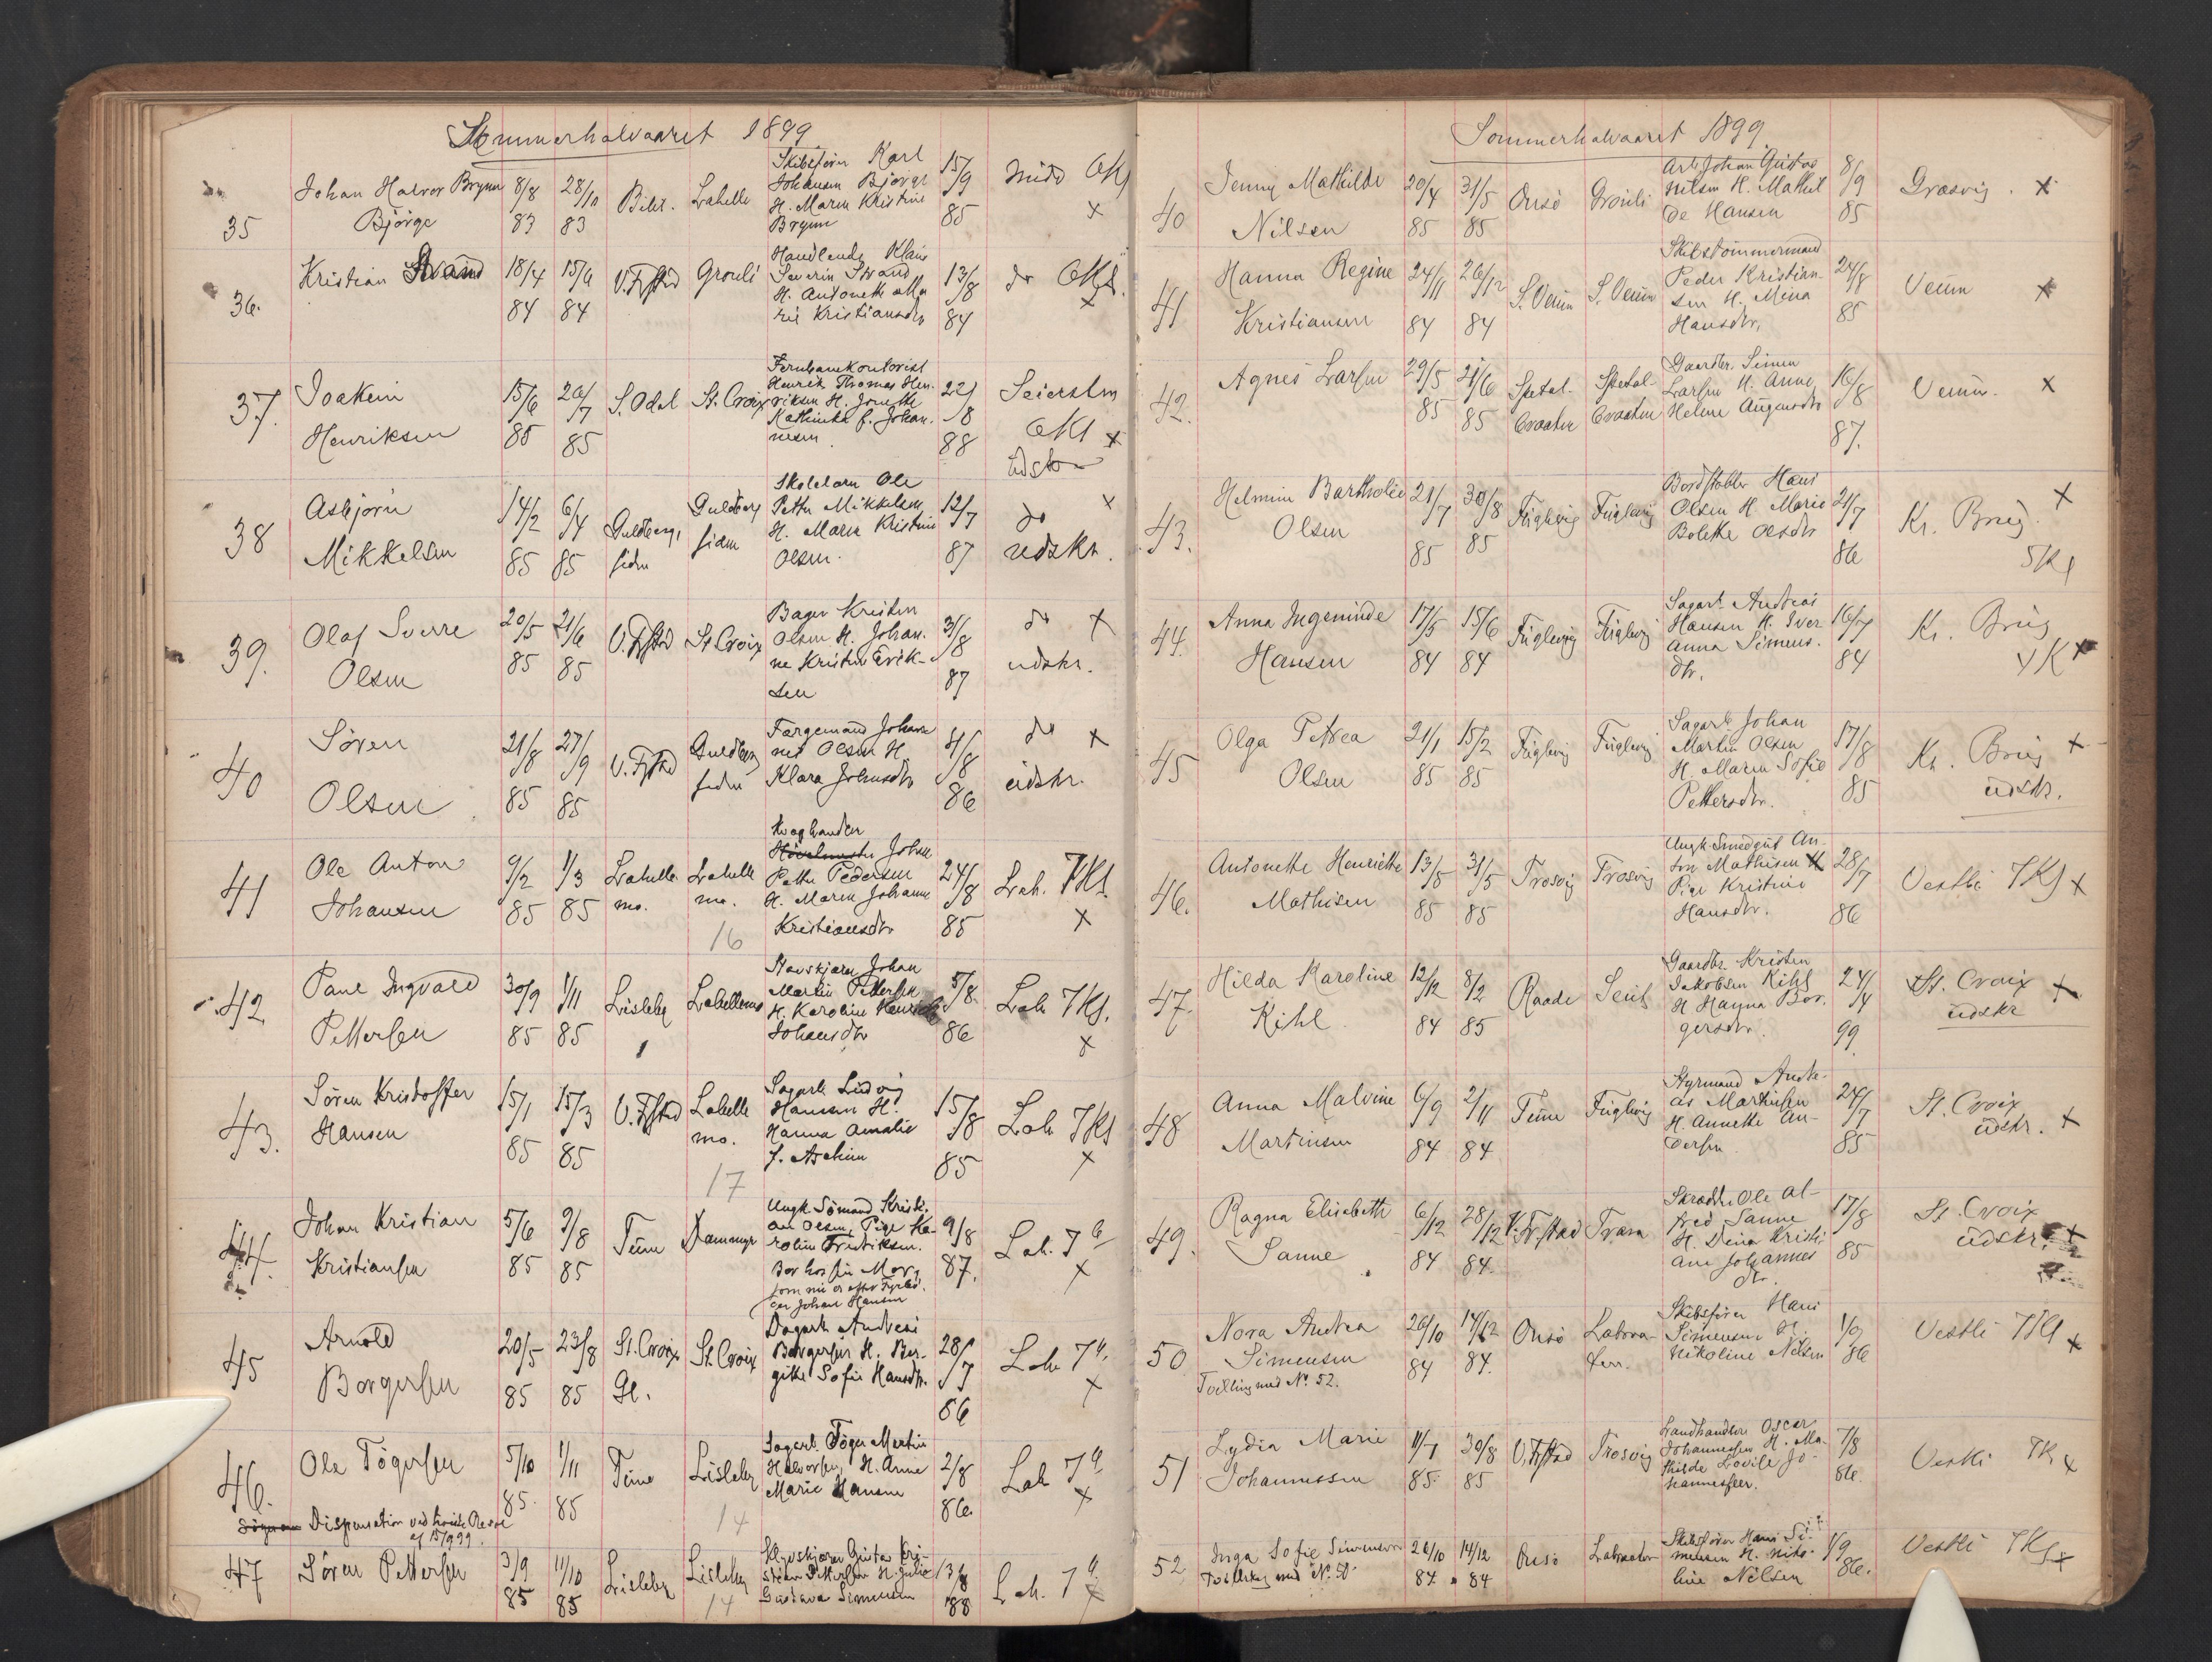 Sommerhalvaaret 1899
35
Johan Halvor Brynn
Björge
8/8
83
28/10
83
Labelle
Skibsfører Karl
Johansen Björge
H. Maren Kristine
Brynn
15/9
85
36.
Kristian Strand
18/4
84
15/6
84
V. Frstad
Grouli
Handlende Klaus
Severin Strand
H. Antonette Ma
rie Kristiansdtr
13/8
84
do
37.
Joakim
Henriksen
15/6
85
26/7
85
S. Odal
St. Croix
Jernbanekontorist
Henrik Thomas Hen-
riksen H. Jonette
Kathinka f. Johan-
nesen
22/8
88
38
Asbjørn
Mikkelsen
14/2
85
6/4
85
Guldberg
siden
Guldberg
siden
Skolelærer Ole
Petter Mikkelsen
H. Maren Kristine
Olsen.
12/7
87
do
udskr.
39.
Olaf Sverre
Olsen
20/5
85
21/6
85
V. Frstad
St. Croix
Bager Kristen
Olsen H. Johan-
ne Kristine Erik-
sen
31/8
87
do
udskr.
40
Søren
Olsen
21/8
85
27/9
85
V. Frstad
Guldberg
siden
Færgemand Johan
nes Olsen H.
Klara Johnsdtr
86
do
udskr.
41
Ole Anton
Johansen
9/2
85
1/3
85
Labelle
mo.
Labelle
mo.
16
Johan
Petter Pedersen
H. Maren Johanne
Kristiansdtr
24/8
85
Lah. 7Kl
42
Paul Ingvald
Pettersen
30/9
85
1/11
85
Lisleby
Labellemo
Stavskjærer Johan
Martin Pettersen
H. Karoline Henriette
Johansdtr
5/8
86
Lah 7Kl.
43.
Søren Kristoffer
Hansen
15/1
85
15/3
85
V. Frstad
Labelle
mo.
17
Sagarb. Ludvig
Hansen H.
Hanna Amalie
15/8
85
Lah 7Kl
44.
Johan Kristian
Kristiansen
5/6
85
9/8
85
Tune
Dammyr
Ungk. Sömand Kristi-
an Olsen, Pige Ka-
roline Fredriksen.
Bor hos sin Mor,
som nu er gift
Johan Hansen
9/8
87.
Lah. 7
45
Arnold
Borgersen
20/5
85
23/8
85
St. Croix
Gl.
St. Croix
Dagarb Andreas
Borgersen H. Ber-
gitte Sofie Hansdtr.
28/7
86
Lah 7
46.
Ole Tögersen
5/10
85
1/11
85
Tune
Lisleby
14
Sagarb. Töger Martin
Halvorsen, H. Anne
Marie Hansen
2/8
86.
Lah 7
Dispensation
af 15/9 99.
47
Søren Pettersen
3/9
85
11/10
85
Lisleby
Lisleby
14
Gustav Kri-
stian Pettersen H. Julie
Gustava Simensen
88
Lah. 7
Sommerhalvaaret 1899
40
Jenny Mathilde
Nilsen
20/4
85
31/5
85
Onsö
Grouli
Arb Johan Gustav
Nilsen H. Mathil
de Hansen
8/9
85
Græsvig.
41
Hanna Regine
Kristiansen
24/11
84
26/12
84
S. Veum
S. Veum
Skibstömmermand
Peder Kristian-
sen H. Mina
Hansdtr.
24/8
85
Veum
42.
Agnes Larsen
29/5
85
21/6
85
Spetal-
braaten
Spetal-
braaten
Gaardbr. Simen
Larsen H. Anne
Helene Augensdtr
16/8
87.
Veum.
43.
Helmine Bartholie
Olsen
21/7
85
30/8
85
Fuglevig
Fuglevig
Bordstabler Hans
Olsen H. Marie
Bolette Olsdtr
21/7
86
Kr. Brug.
5Kl
44.
Anna Ingeminde
Hansen
17/5
84
15/6
84
Fuglevig
Fuglevig
Sagarb. Andreas
Hansen H. Iver-
anna Simens-
dtr.
16/7
84
Kr. Brug
4K
45
Olga Petrea
Olsen
21/1
85
15/2
85
Fuglevig
Fuglevig
Sagarb Johan
Martin Olsen
H. Maren Sofie
Pettersdtr.
17/8
85
Kr. Brug
udskr.
46.
Antonette Henriette
Mathisen
13/5
85
31/5
85
Trosvig
Trosvig
Ungk. Smedgut An-
ton Mathisen
Pige Kristine
Hansdtr.
28/7
86
Vestli 7Kl
47.
Hilda Karoline
Kihl
12/12
84
8/2
85
Raade
Seut
Gaardbr. Kristen
Jakobsen Kihl
H Hagna Bor-
gersdtr.
24/4
99
St. Croix
udskr
48
Anna Malvine
Martinsen
6/9
84
2/11
84
Tune
Fuglevig
Styrmand Andre-
as Martinsen
H. Annette An-
dersen
24/7
85
St. Croix
udskr.
49.
Ragna Elisabeth
Sanne
6/12
84
28/12
84.
V. Frstad
Trara
Skrædder Ole Al-
fred Sanne
H. Dina Kristi
ane Johannes
dtr.
17/8
85
St. Croix
udskr.
50
Nora Andrea
Simensen
Tvilling med No. 52.
26/10
84
14/12
84.
Onsö
Labora-
teri.
Skibsfører Hans
Simensen H.
Nikoline Nilsen
1/9
86
Vestli 7Kl
51
Lydia Marie
Johannessen
11/7
85.
30/8
85
V. Frstad
Trosvig
Landhandler Oscar
Johannessen H. Ma-
thilde Lovise Jo-
hannessen.
7/8
86.
Vestli 7K
52
Inga Sofie Simensen
Tvilling med No. 50.
26/10
84.
14/12
84
Onsö
Laborator
Skibsfører Hans Si-
mensen H. Niko-
line Nilsen
1/9
86.
Vestli 7Kl